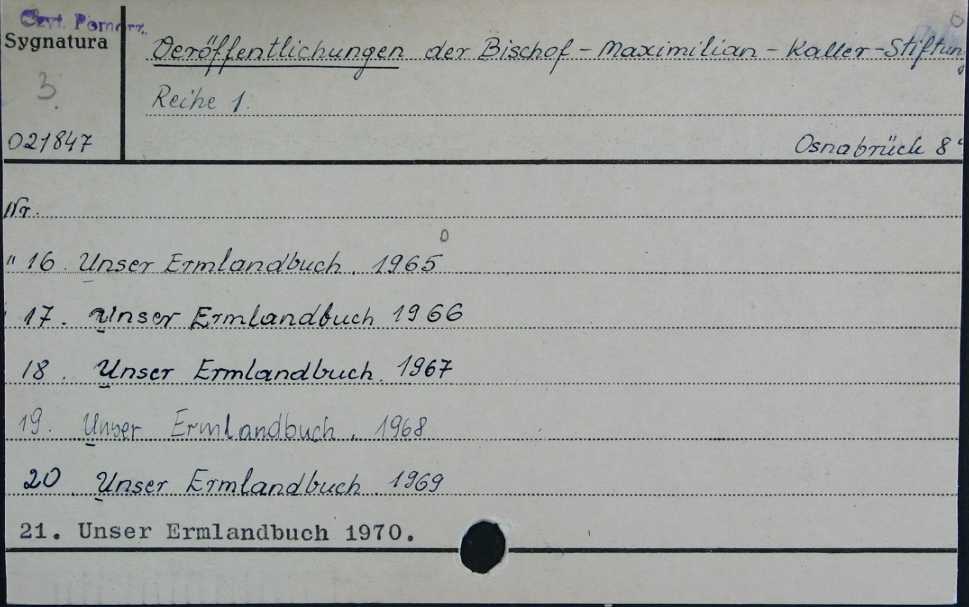 Czyt. Pomorz.
Sygnatura
3.
021847
Veröffentlichungen der Bischof-Maximilian-Kaller-Stiftung
Reihe 1.
Osnabrück 8°
Nr.
" 16. Unser Ermlandbuch. 1965
17. Unser Ermlandbuch 1966
18. Unser Ermlandbuch. 1967
19. Unser Ermlandbuch. 1968
20. Unser Ermlandbuch. 1969
21. Unser Ermlandbuch 1970.